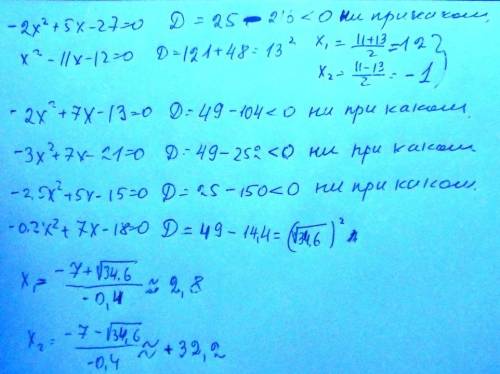 -2x²+5x-27=0 D = 25 - 216 < 0 ни при каком.
x²-11x-12=0 D=121+48=13² x₁ = (11+13)/2 = 12}
x₂ = (11-13)/2 = -1
-2x²+7x-13=0 D = 49-104<0 ни при каком.
-3x²+7x-21=0 D = 49-252<0 ни при каком
-2,5x²+5x-15=0 D = 25-150<0 ни при каком.
-0.2x²+7x-18=0 D = 49-14,4=(√34,6)²
x₁= (-7+√34.6)/(-0,4) ≈ 2,8
x₂= (-7-√34,6)/(-0,4) ≈ +32,2